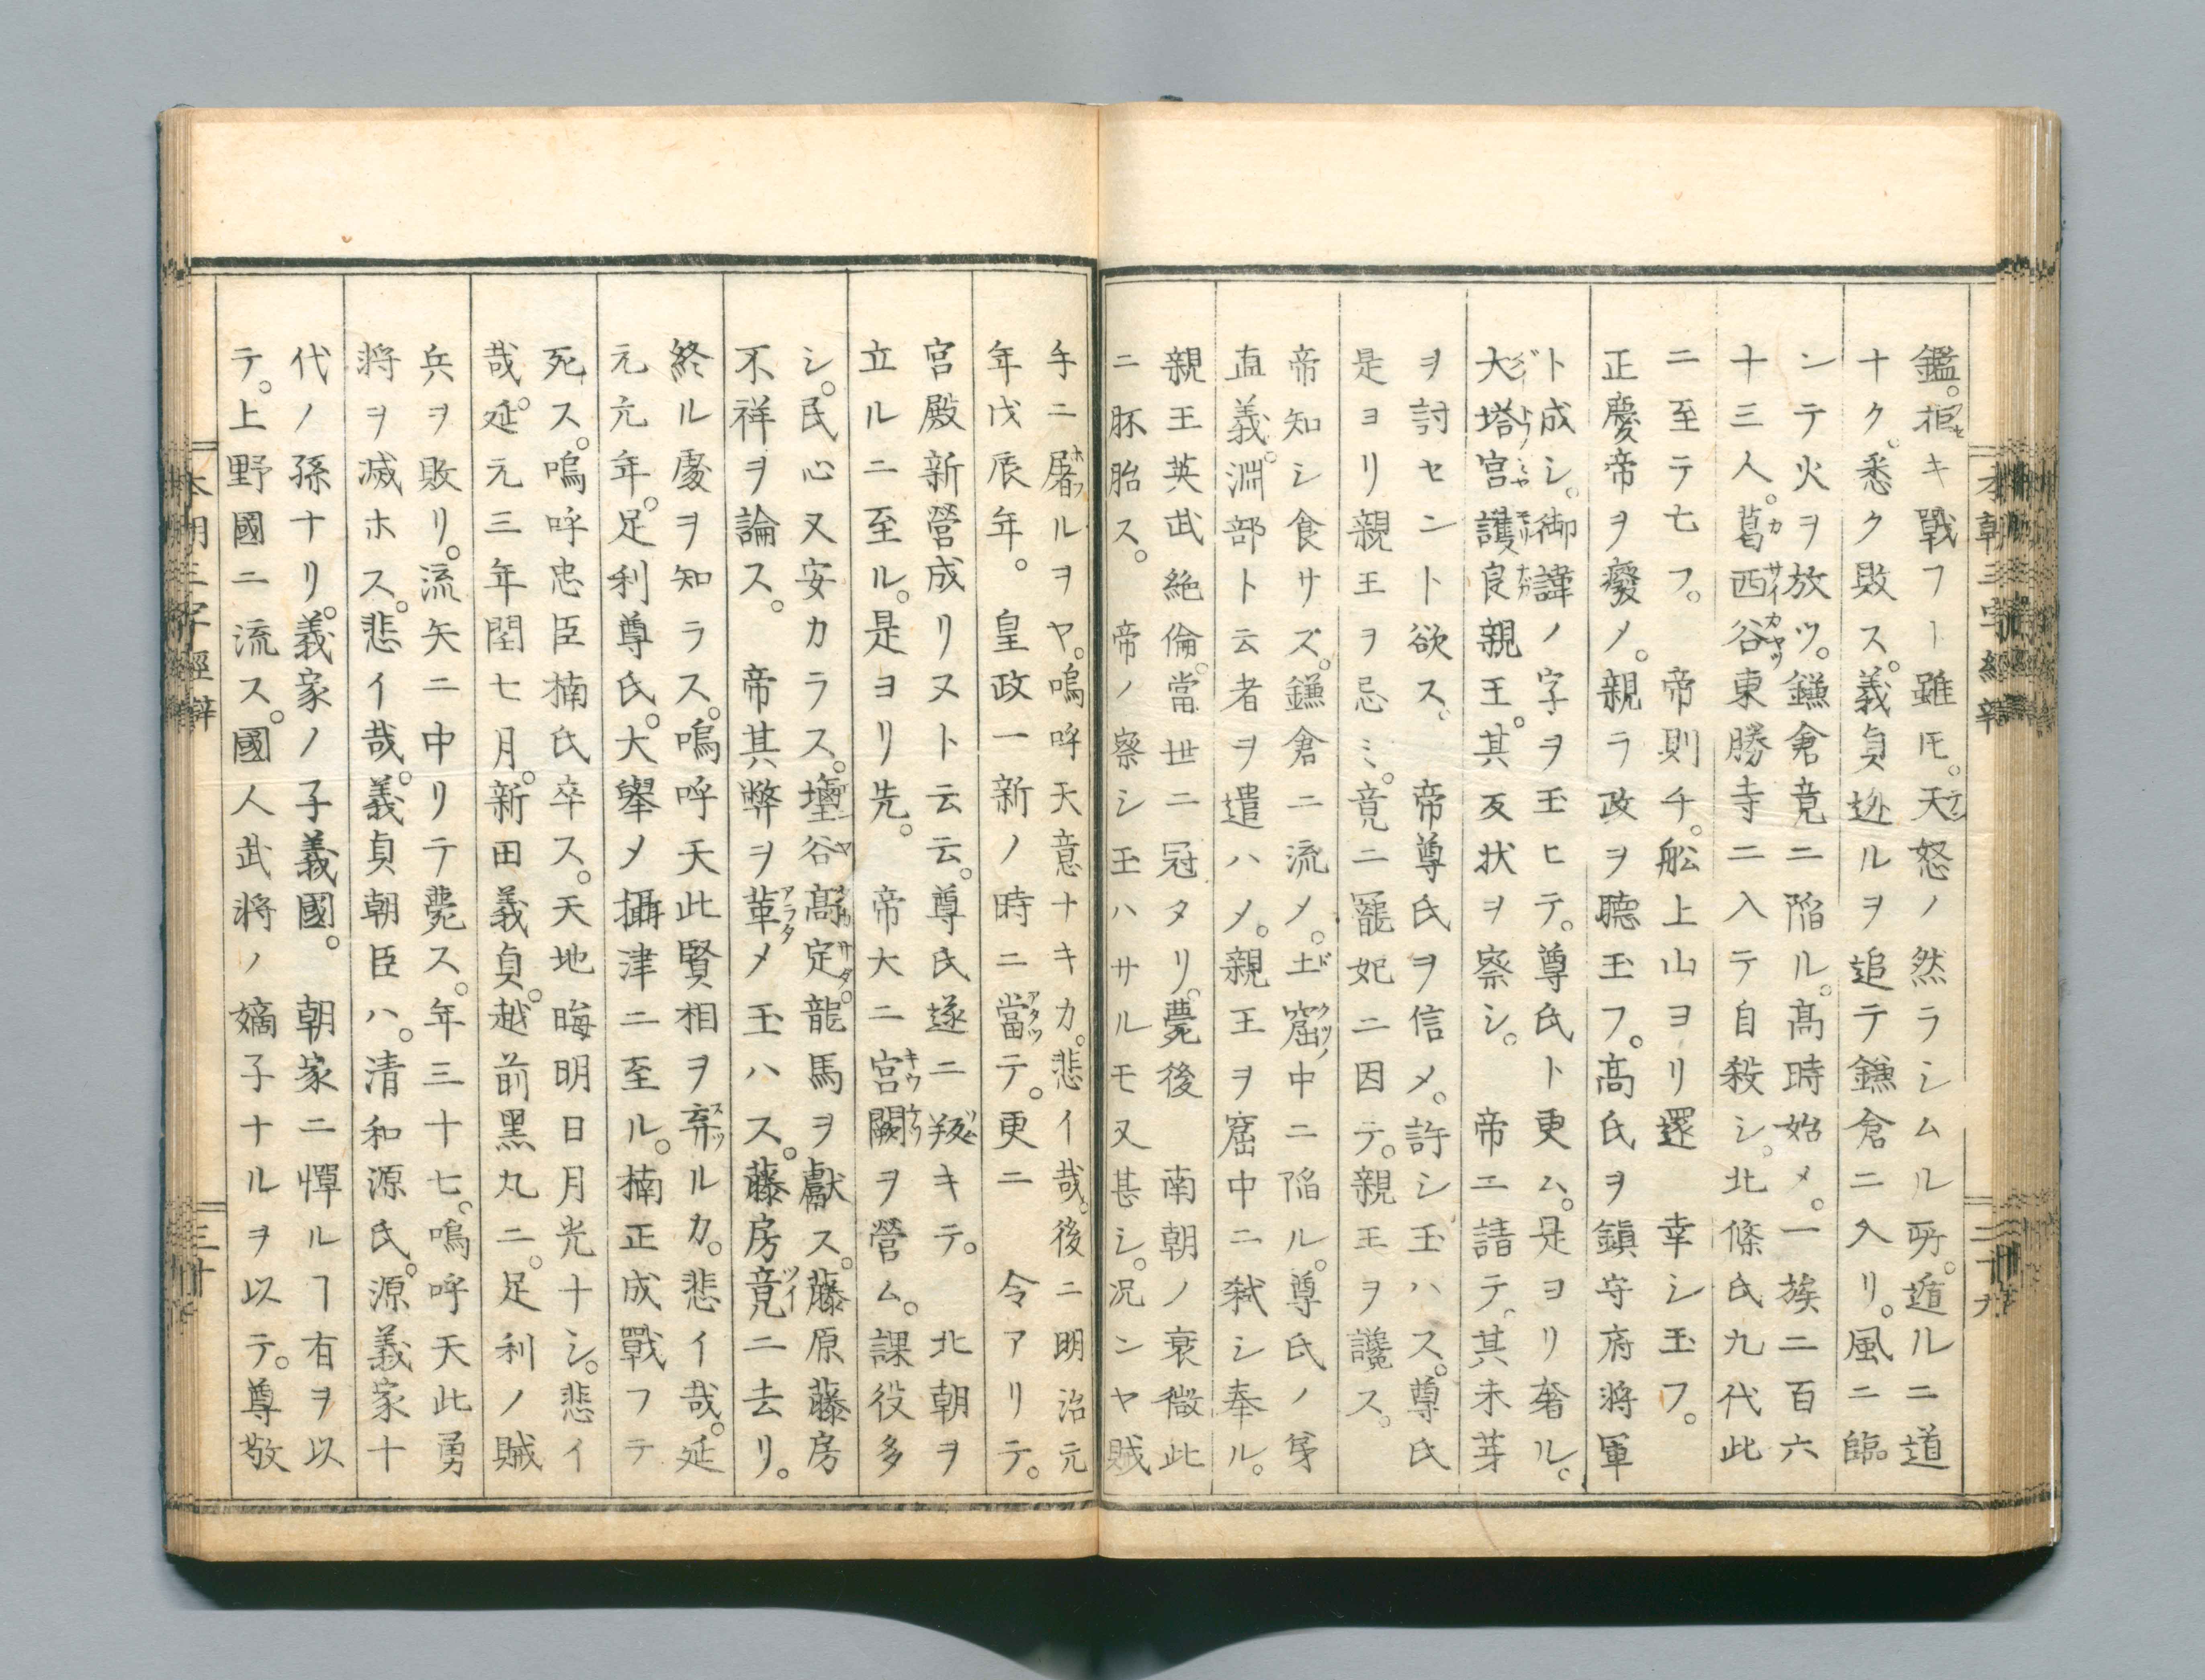 鑑。拒キ戰フト雖モ。天怒ノ然ラシムル所。遁ルニ道
ナク。悉ク敗ス。義貞迯ルヲ追テ鎌倉ニ入リ。風ニ臨
ンテ火ヲ放ツ。鎌倉竟ニ陷ル。髙時始メ。一族二百六
十三人。葛西谷東勝寺ニ入テ自殺シ。北條氏九代此
ニ至テ亡フ。　帝則チ。舩上山ヨリ還　幸シ玉フ。
正慶帝ヲ癈メ。親ラ政ヲ聽玉フ。髙氏ヲ鎭守府將軍
ト成シ。御諱ノ字ヲ玉ヒテ。尊氏ト更ム。是ヨリ奢ル。
大塔宮護良親王。其反状ヲ察シ。　帝エ請テ。其未芽
ヲ討セント欲ス。　帝尊氏ヲ信メ。許シ玉ハス。尊氏
是ヨリ親王ヲ忌ミ。竟ニ寵妃ニ因テ。親王ヲ讒ス。
帝知シ食サズ。鎌倉ニ流メ。土窟中ニ陷ル。尊氏ノ弟
直義。淵部ト云者ヲ遣ハメ。親王ヲ窟中ニ弑シ奉ル。
親王英武絶倫。當世ニ冠タリ。薨後　南朝ノ衰微此
ニ胚胎ス。　帝ノ察シ玉ハサルモ又甚シ。况ンヤ賊
手ニ屠ルヲヤ。嗚呼天意ナキカ。悲イ哉。後ニ明治元
年戊辰年。　皇政一新ノ時ニ當テ。更ニ　令アリテ。
宮殿新營成リヌト云云。尊氏遂ニ叛キテ。　北朝ヲ
立ルニ至ル。是ヨリ先。　帝大ニ宮闕ヲ營ム。課役多
シ。民心又安カラス。塩谷髙定。龍馬ヲ獻ス。藤原藤房
不祥ヲ論ス。　帝其弊ヲ革メ玉ハス。藤房竟ニ去リ。
終ル處ヲ知ラス。嗚呼天此賢相ヲ棄ルカ。悲イ哉。延
元元年。足利尊氏。大舉メ攝津ニ至ル。楠正成戰フテ
死ス。嗚呼忠臣楠氏卒ス。天地晦明日月光ナシ。悲イ
哉。延元三年閏七月。新田義貞。越前黒丸ニ。足利ノ賊
兵ヲ敗リ。流矢ニ中リテ薨ス。年三十七。嗚呼天此勇
将ヲ滅ホス。悲イ哉。義貞朝臣ハ。清和源氏。源義家十
代ノ孫ナリ。義家ノ子義國。　朝家ニ憚ルヿ有ヲ以
テ。上野國ニ流ス。國人武将ノ嫡子ナルヲ以テ。尊敬
本朝三字經辞
三十